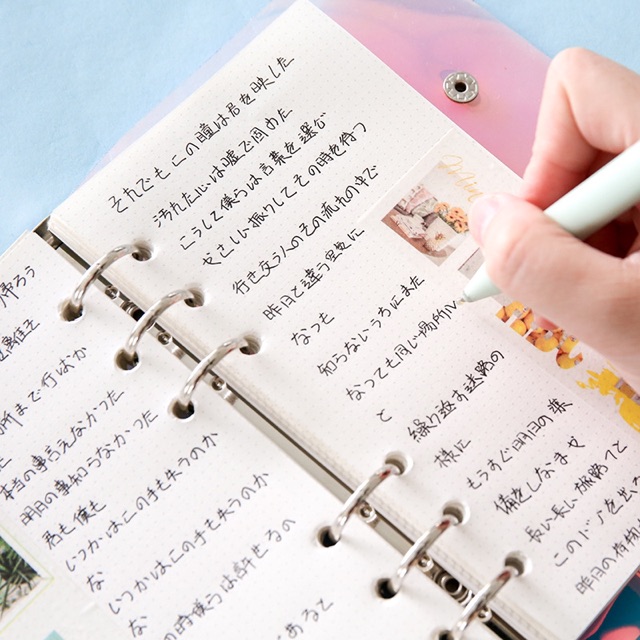 帰ろう
所まで行ほか
本当の事言えなかった
明日の事知らなかった
君も僕も
いつかはこの手も失うのか
な
いつかはこの手も失うのか
な
の時僕らは許せるの
あると
それでもこの瞳は君を映した
汚れた心は嘘で固めた
こうして僕らは言葉を選ぶ
やさしい振りしてその時を待つ
行き交う人のその流れの中で
昨日と違う星に
なっても
知らないうちにまた
なっても同じ場所
と
繰り返す迷路の
様に
もうすぐ明日の準
備をしなきゃ
長い長い旅路って
このドアを出
昨日の